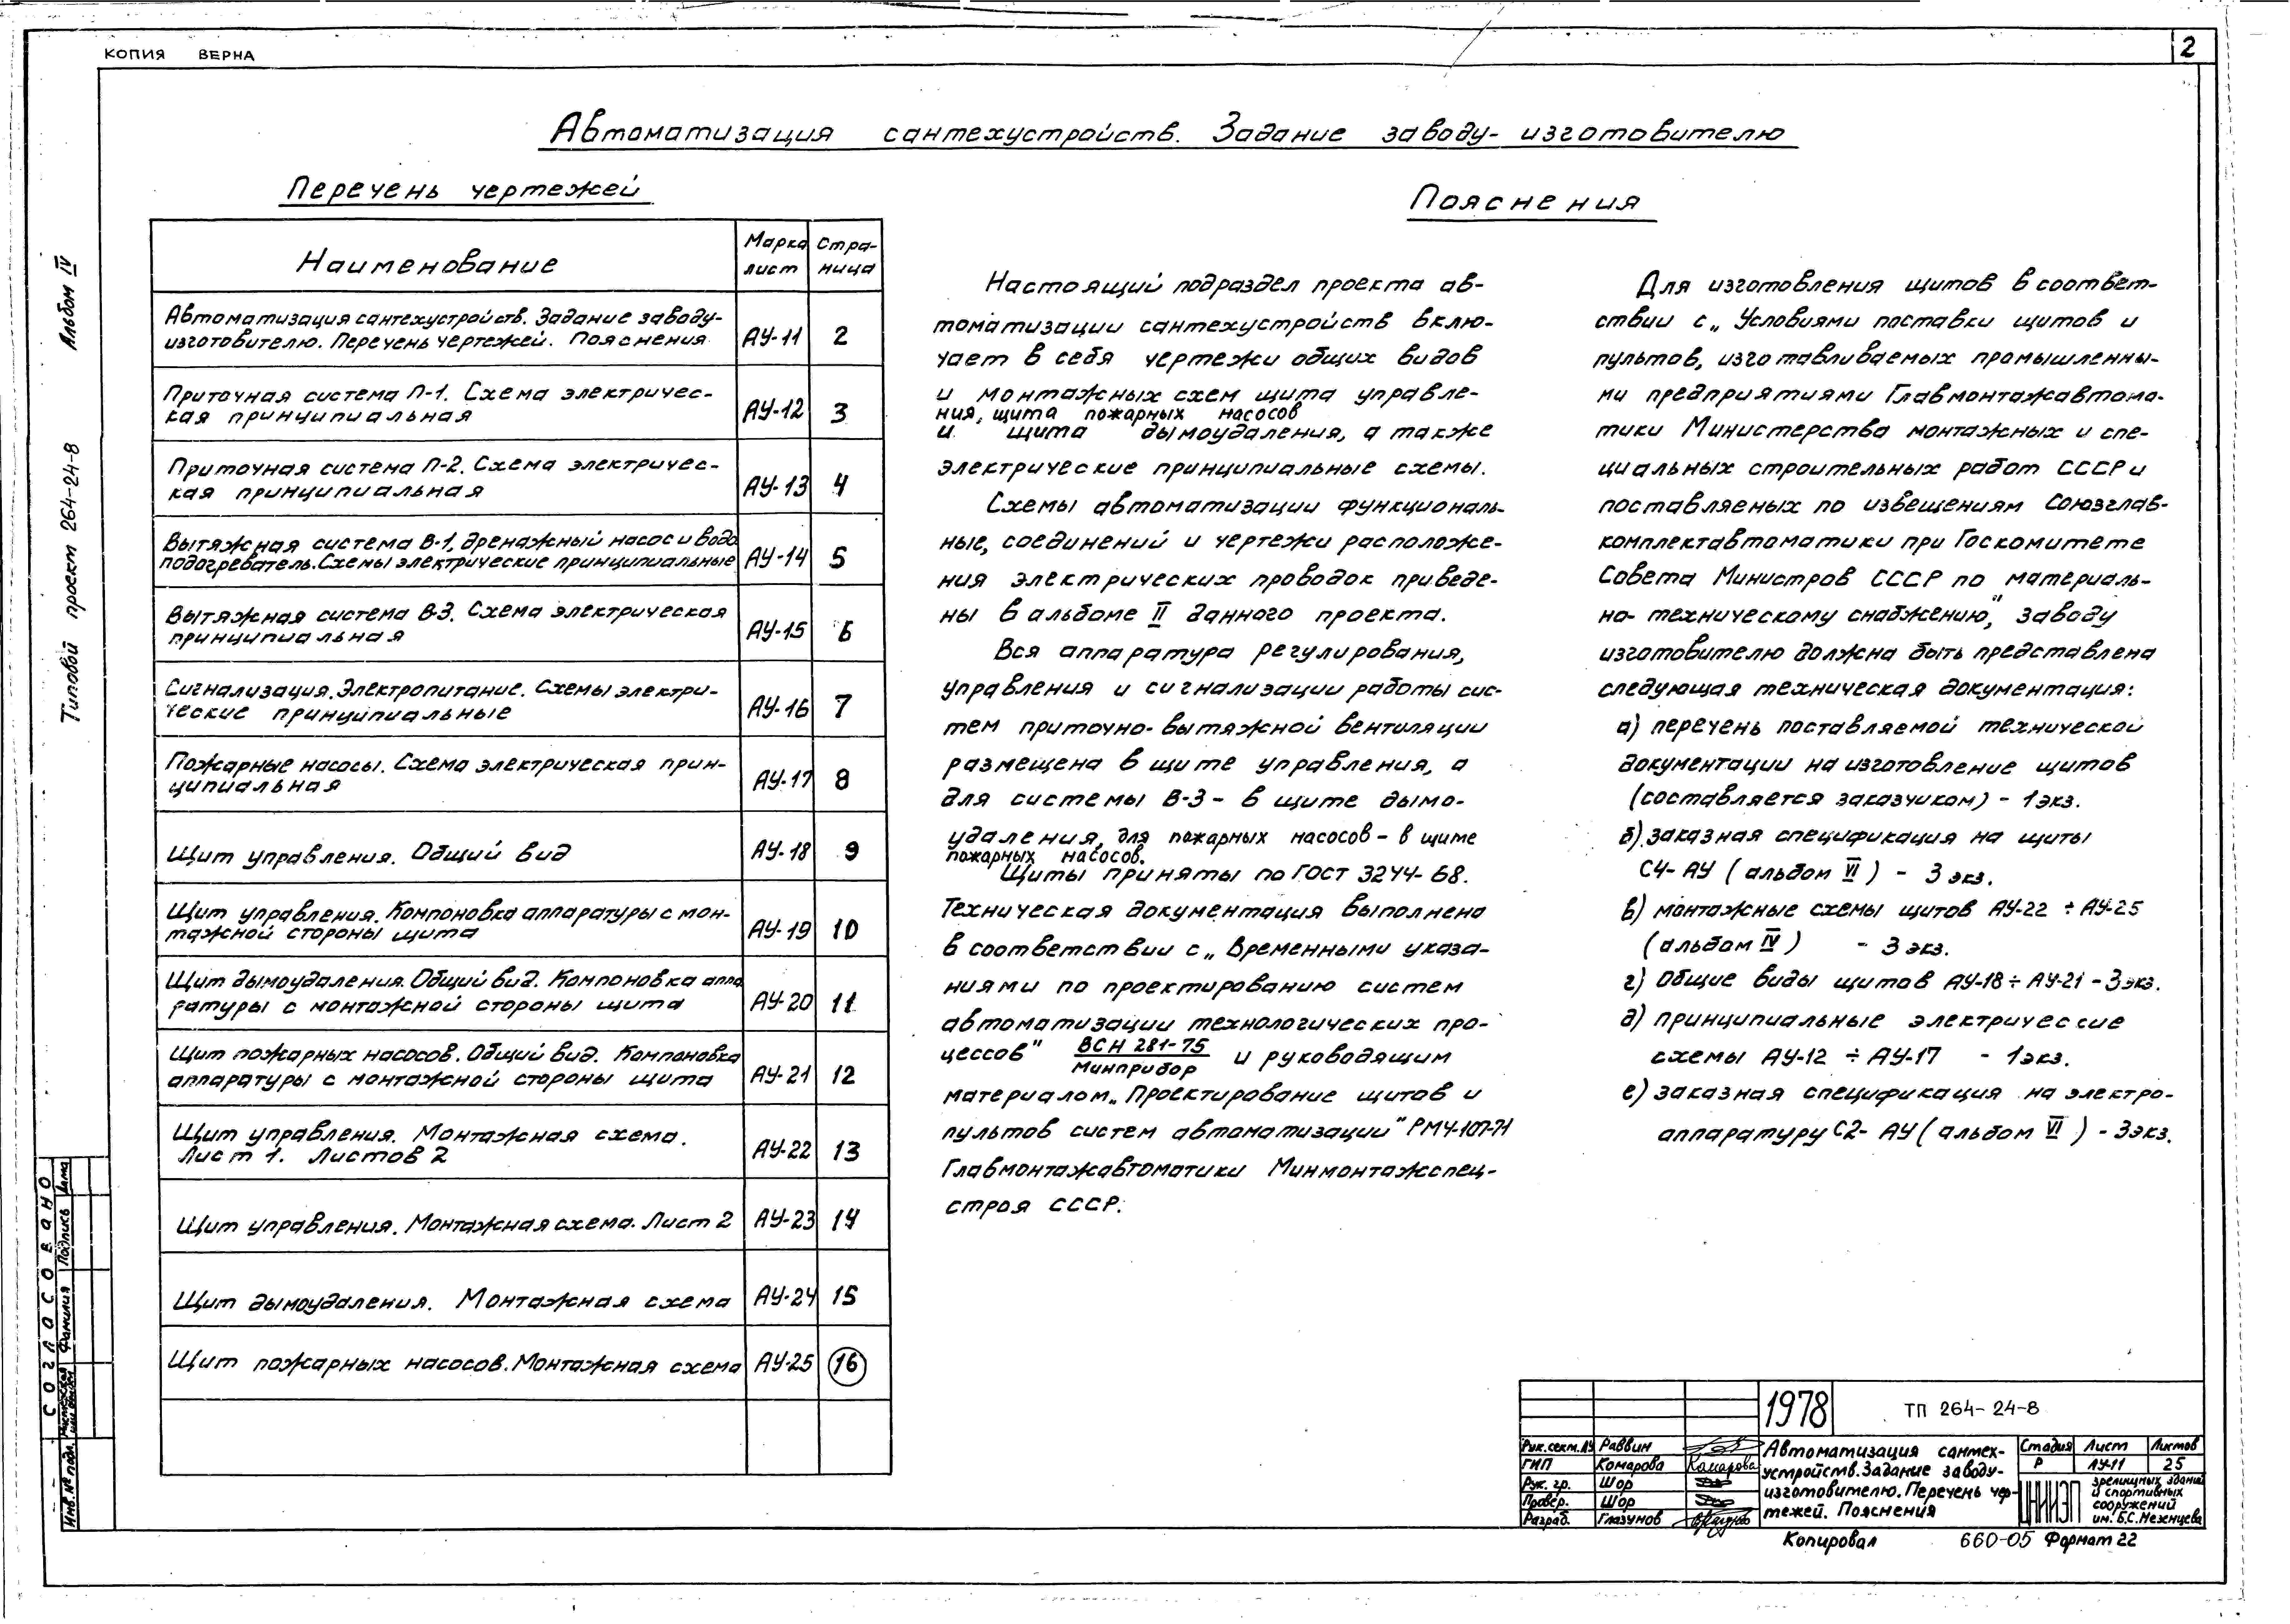 КОПИЯ ВЕРНА
2
Автоматизация сантехустройств. Задание заводу-изготовителю
Перечень чертежей
Наименование
Марка лист
Страница
Автоматизация сантехустройств. Задание заводу-
изготовителю. Перечень чертежей. Пояснения
АУ-11
2
Приточная система П-1. Схема электричес-
кая принципиальная
АУ-12
3
Приточная система П-2. Схема электричес-
кая принципиальная
АУ-13
4
Вытяжная система В-1, дренажный насос и водо
подогреватель. Схемы электрические принципиальные
АУ-14
5
Вытяжная система В-3. Схема электрическая
принципиальная
АУ-15
6
Сигнализация. Электропитание. Схемы электри-
ческие принципиальные
АУ-16
7
Пожарные насосы. Схема электрическая прин-
ципиальная
АУ-17
8
Щит управления. Общий вид
АУ-18
9
Щит управления. Компоновка аппаратуры с мон-
тажной стороны щита
АУ-19
10
Щит дымоудаления. Общий вид. Компоновка аппа
ратуры с монтажной стороны щита
АУ-20
11
Щит пожарных насосов. Общий вид. Компоновка
аппаратуры с монтажной стороны щита
АУ-21
12
Щит управления. Монтажная схема.
Лист 1. Листов 2
АУ-22
13
Щит управления. Монтажная схема. Лист 2
АУ-23
14
Щит дымоудаления. Монтажная схема
АУ-24
15
Щит пожарных насосов. Монтажная схема
АУ-25
16
Пояснения
Настоящий подраздел проекта ав-
томатизации сантехустройств вклю-
чает в себя чертежи общих видов
и монтажных схем щита управле-
ния, щита пожарных насосов
и щита дымоудаления, а также
электрические принципиальные схемы.
Схемы автоматизации функциональ-
ные, соединений и чертежи расположе-
ния электрических проводок приведе-
ны в альбоме II данного проекта.
Вся аппаратура регулирования,
управления и сигнализации работы сис-
тем приточно-вытяжной вентиляции
размещена в щите управления, а
для системы В-3 - в щите дымо-
удаления, для пожарных насосов - в щите
пожарных насосов.
Щиты приняты по ГОСТ 3244-68.
Техническая документация выполнена
в соответствии с „Временными указа-
ниями по проектированию систем
автоматизации технологических про-
цессов" ВСН 281-75 / Минприбор и руководящим
материалом „Проектирование щитов и
пультов систем автоматизации" РМ4-107-71
Главмонтажавтоматики Минмонтажспец-
строя СССР.
Для изготовления щитов в соответ-
ствии с „Условиями поставки щитов и
пультов, изготавливаемых промышленны-
ми предприятиями Главмонтажавтома-
тики Министерства монтажных и спе-
циальных строительных работ СССР и
поставляемых по извещениям Союзглав-
комплектавтоматики при Госкомитете
Совета Министров СССР по материаль-
но-техническому снабжению", заводу
изготовителю должна быть представлена
следующая техническая документация:
а) перечень поставляемой технической
документации на изготовление щитов
(составляется заказчиком) - 1 экз.
б) заказная спецификация на щиты
С4-АУ (альбом VI) - 3 экз.
в) монтажные схемы щитов АУ-22 ÷ АУ-25
(альбом IV) - 3 экз.
г) Общие виды щитов АУ-18 ÷ АУ-21 - 3 экз.
д) принципиальные электрические
схемы АУ-12 ÷ АУ-17 - 1 экз.
е) заказная спецификация на электро-
аппаратуру С2-АУ (альбом VI) - 3 экз.
Альбом IV
Типовой проект 264-24-8
СОГЛАСОВАНО
Фамилия Подпись Дата
Инв. № подл.
1978
ТП 264-24-8
Рук. сект. АУ Раввин
ГИП Комарова Комарова
Рук. гр. Шор
Провер. Шор
Разраб. Глазунов
Автоматизация сантех-
устройств. Задание заводу-
изготовителю. Перечень чер-
тежей. Пояснения
Стадия Лист Листов
Р АУ-11 25
ЦНИИЭП
зрелищных зданий
и спортивных
сооружений
им. Б.С. Мезенцева
Копировал 660-05 Формат 22